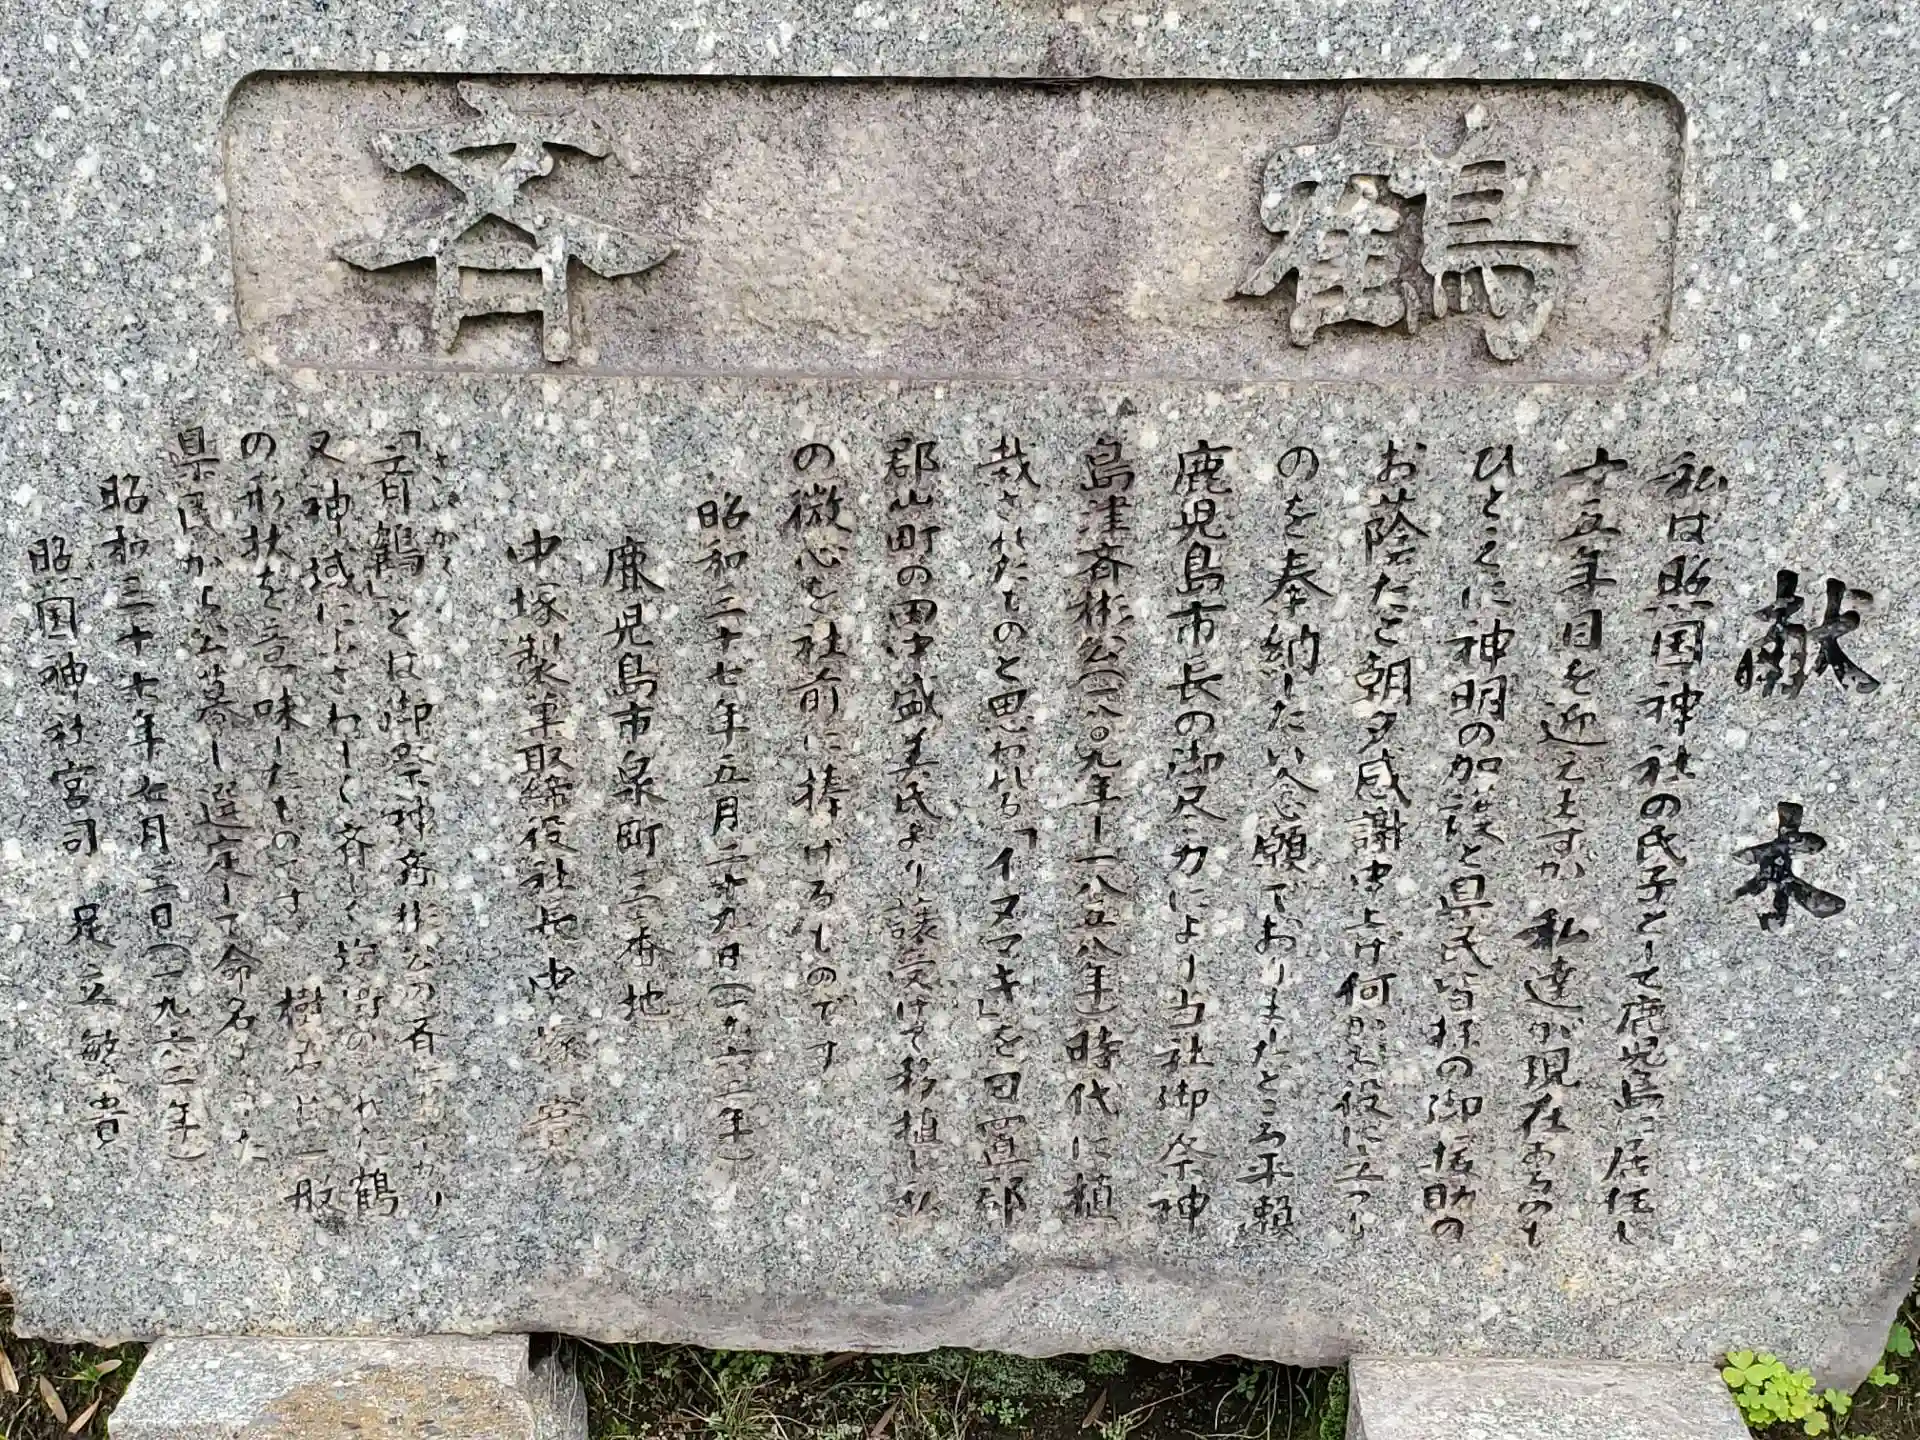 鶴斉
献木
私は照国神社の氏子として鹿児島に居住し
十五年目を迎えますが私達が現在あるのも
ひとくに神明の加護と県民皆様の御援助の
お蔭だと朝夕感謝申上げ何かお役に立つも
のを奉納したい念願でおりましたところ平瀬
鹿児島市長の御尽力により当社御祭神
島津斉彬公(一八〇九年―一八五八年)時代に植
栽されたものと思われる「イヌマキ」を日置郡
郡山町の田中盛美氏より譲受けて移植し私
の微心を社前に捧げるものです
昭和三十七年五月二十九日(一九六二年)
鹿児島市泉町三番地
中塚製菓取締役社長 中塚實
さいかく
「斉鶴」とは御祭神斉彬公の斉にあやかり
又神域にふさわしく斉しく 鶴
の形状を意味したものです 樹名は一般
県民から公募し選定して命名した
昭和三十七年七月三日(一九六二年)
照国神社宮司 足立繁貴